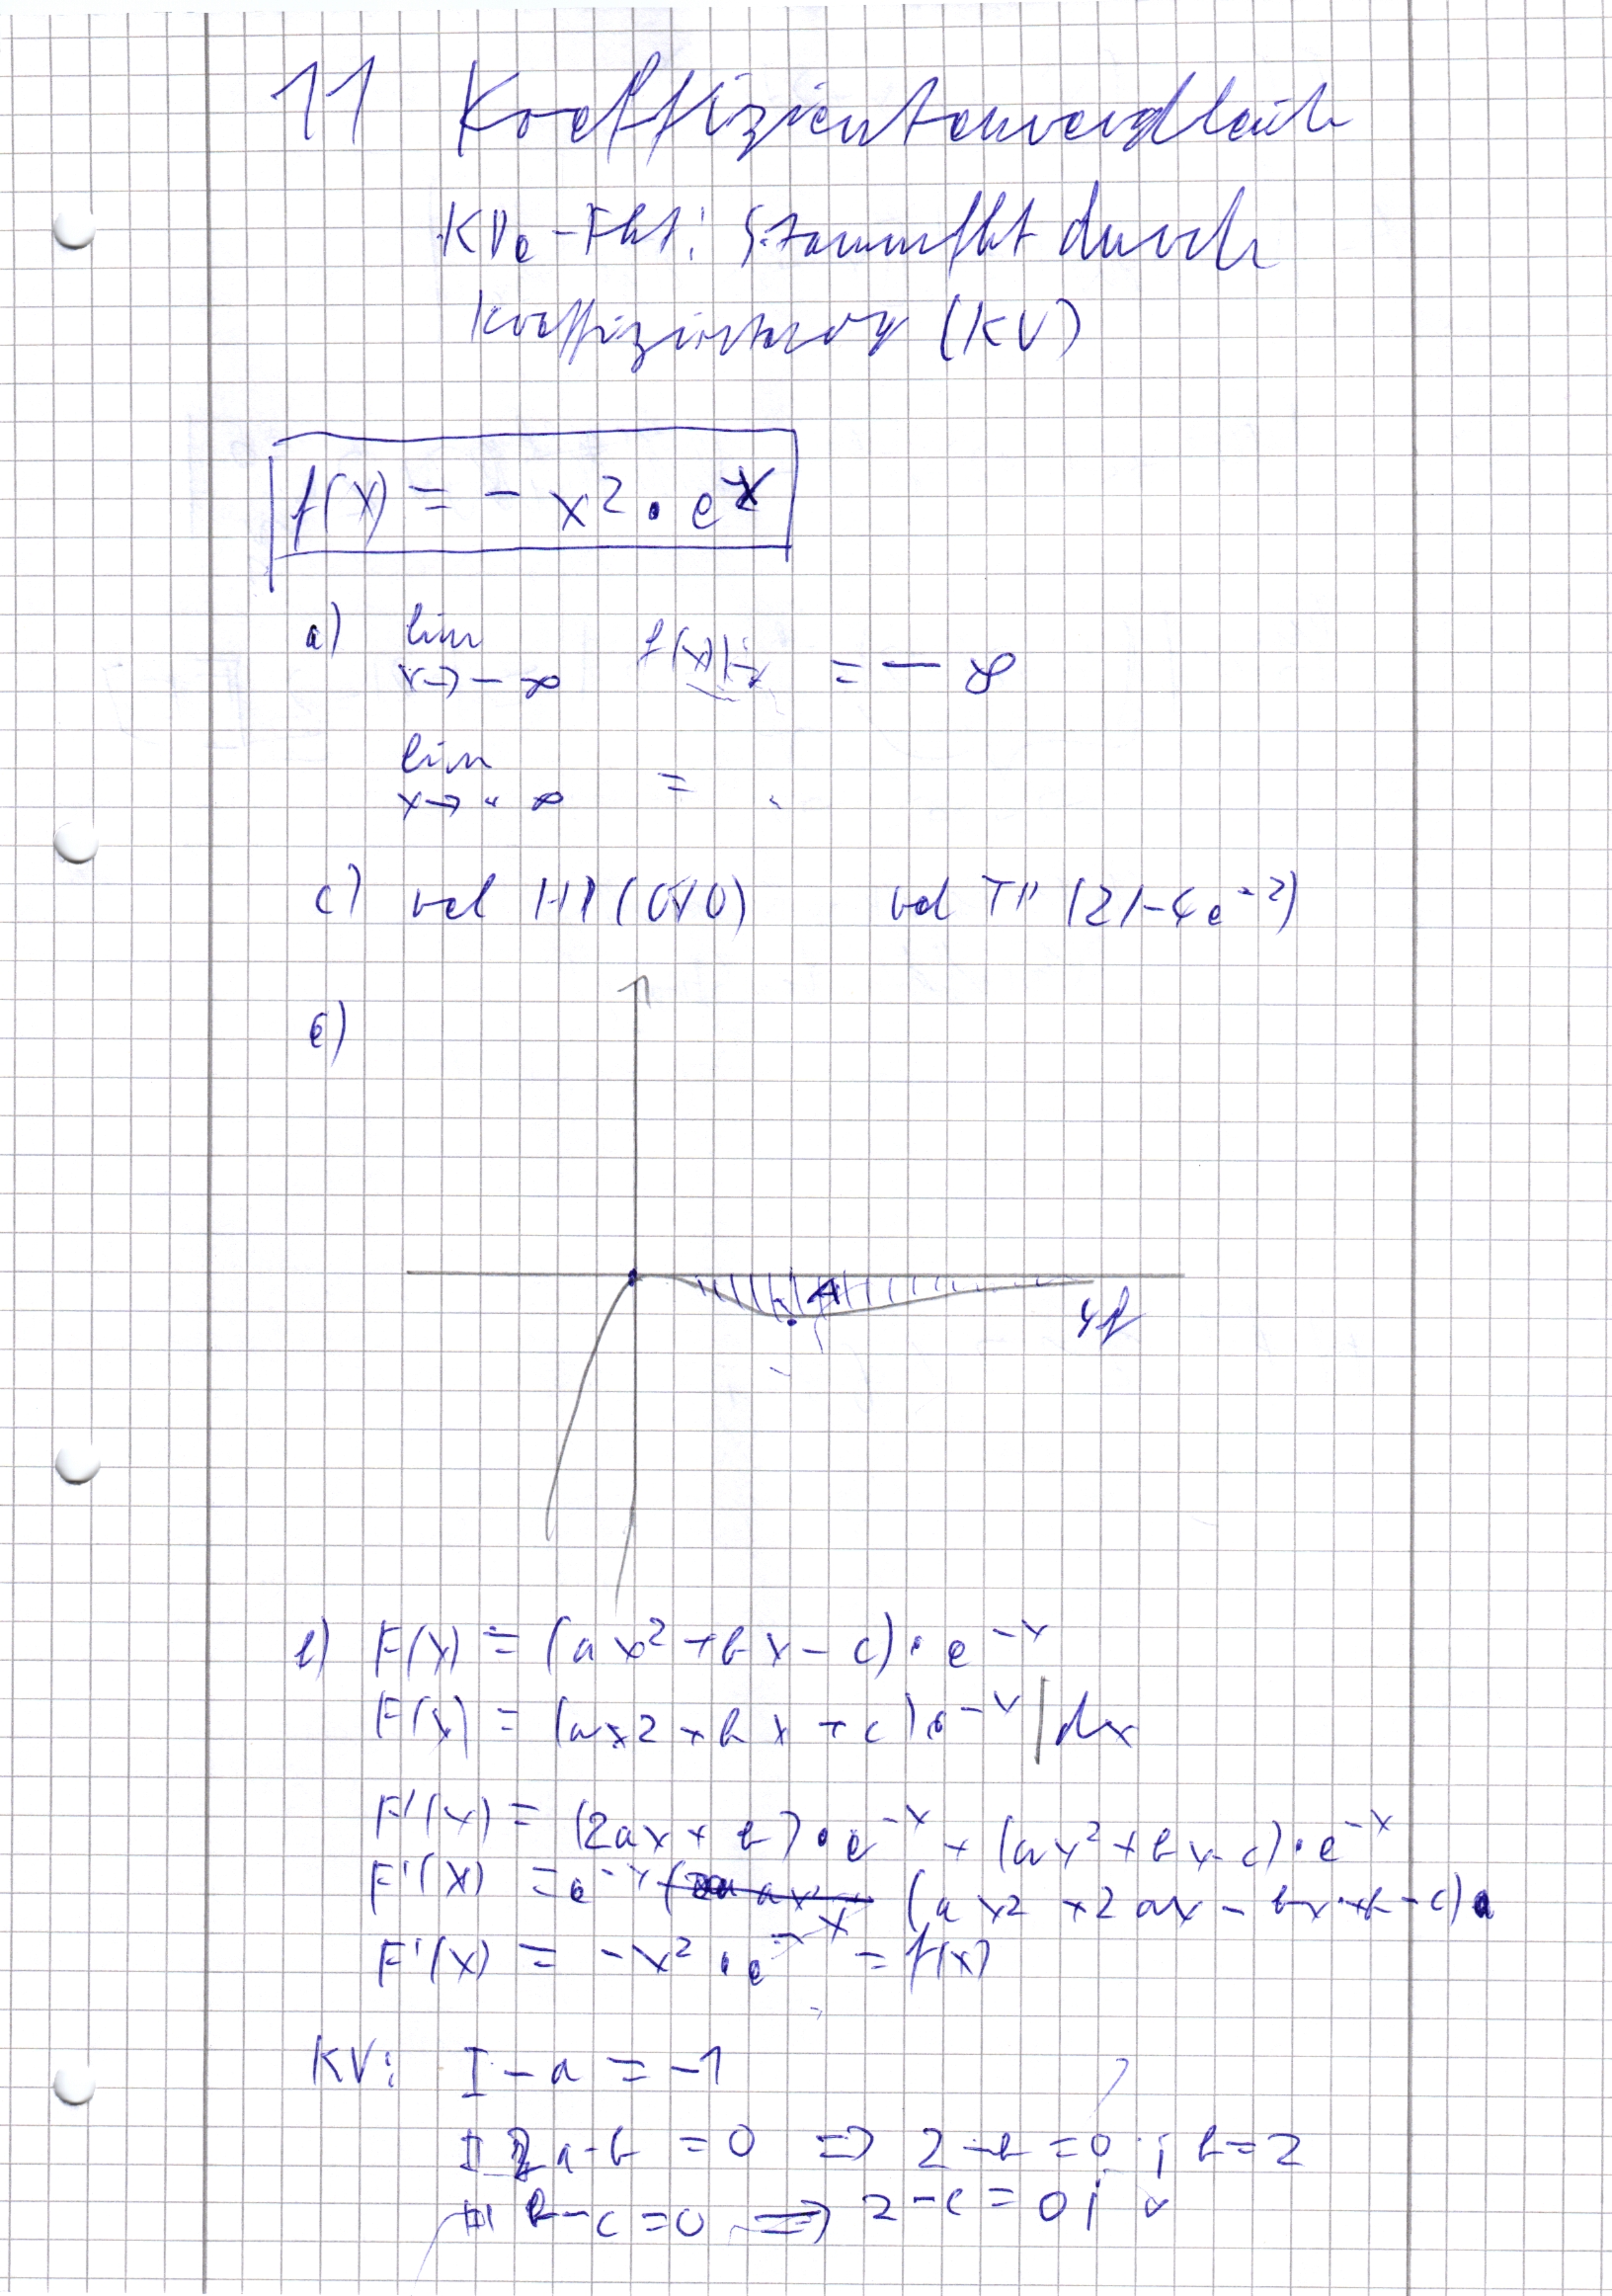 11 Koeffizientenvergleich
KD e-Fkt: Stammfkt durch
Koeffizientenvg (KV)
f(x) = - x² · e^-x
a) lim x→-∞ f(x) = - ∞
lim x→ ∞ =
c) rel HP (0|0) rel TP (2|-4e^-2)
e)
A
Gf
f) F(x) = (ax² + bx - c) · e^-x
F(x) = (ax2 + bx + c) e^-x | dx
F'(x) = (2ax + b) · e^-x + (ax² + bx - c) · e^-x
F'(x) = e^-x (ax2 + 2ax - bx + b - c)
F'(x) = -x² · e^-x = f(x)
KV: I -a = -1
II 2a-b = 0 => 2-b = 0 ; b=2
III b-c = 0 => 2-c = 0 ;